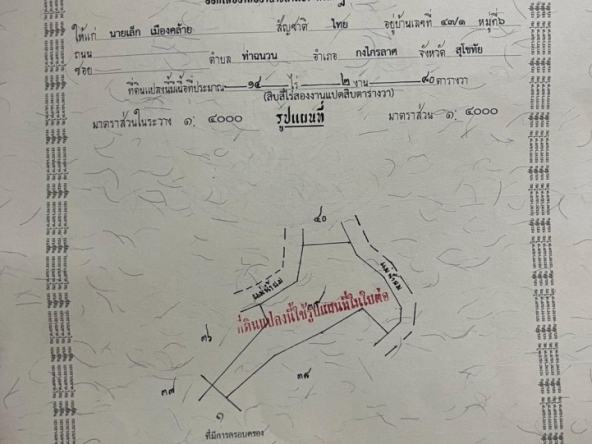 ให้แก่ นายเล็ก เมืองคล้าย สัญชาติ ไทย อยู่บ้านเลขที่ ๔๓/๑ หมู่ที่๖
ถนน
ซอย ตำบล ท่าฉนวน อำเภอ กงไกรลาศ จังหวัด สุโขทัย
ที่ดินแปลงนี้มีเนื้อที่ประมาณ ๑๔ ไร่ ๒ งาน ๘๐ ตารางวา
(สิบสี่ไร่สองงานแปดสิบตารางวา)
มาตราส่วนในระวาง ๑: ๔๐๐๐ รูปแผนที่ มาตราส่วน ๑: ๔๐๐๐
๔๐
แม่น้ำยม
แม่น้ำยม
ที่ดินแปลงนี้ใช้รูปแผนที่ในใบต่อ
๓๖
๓๗
๓๘
๑
ที่มีการครอบครอง